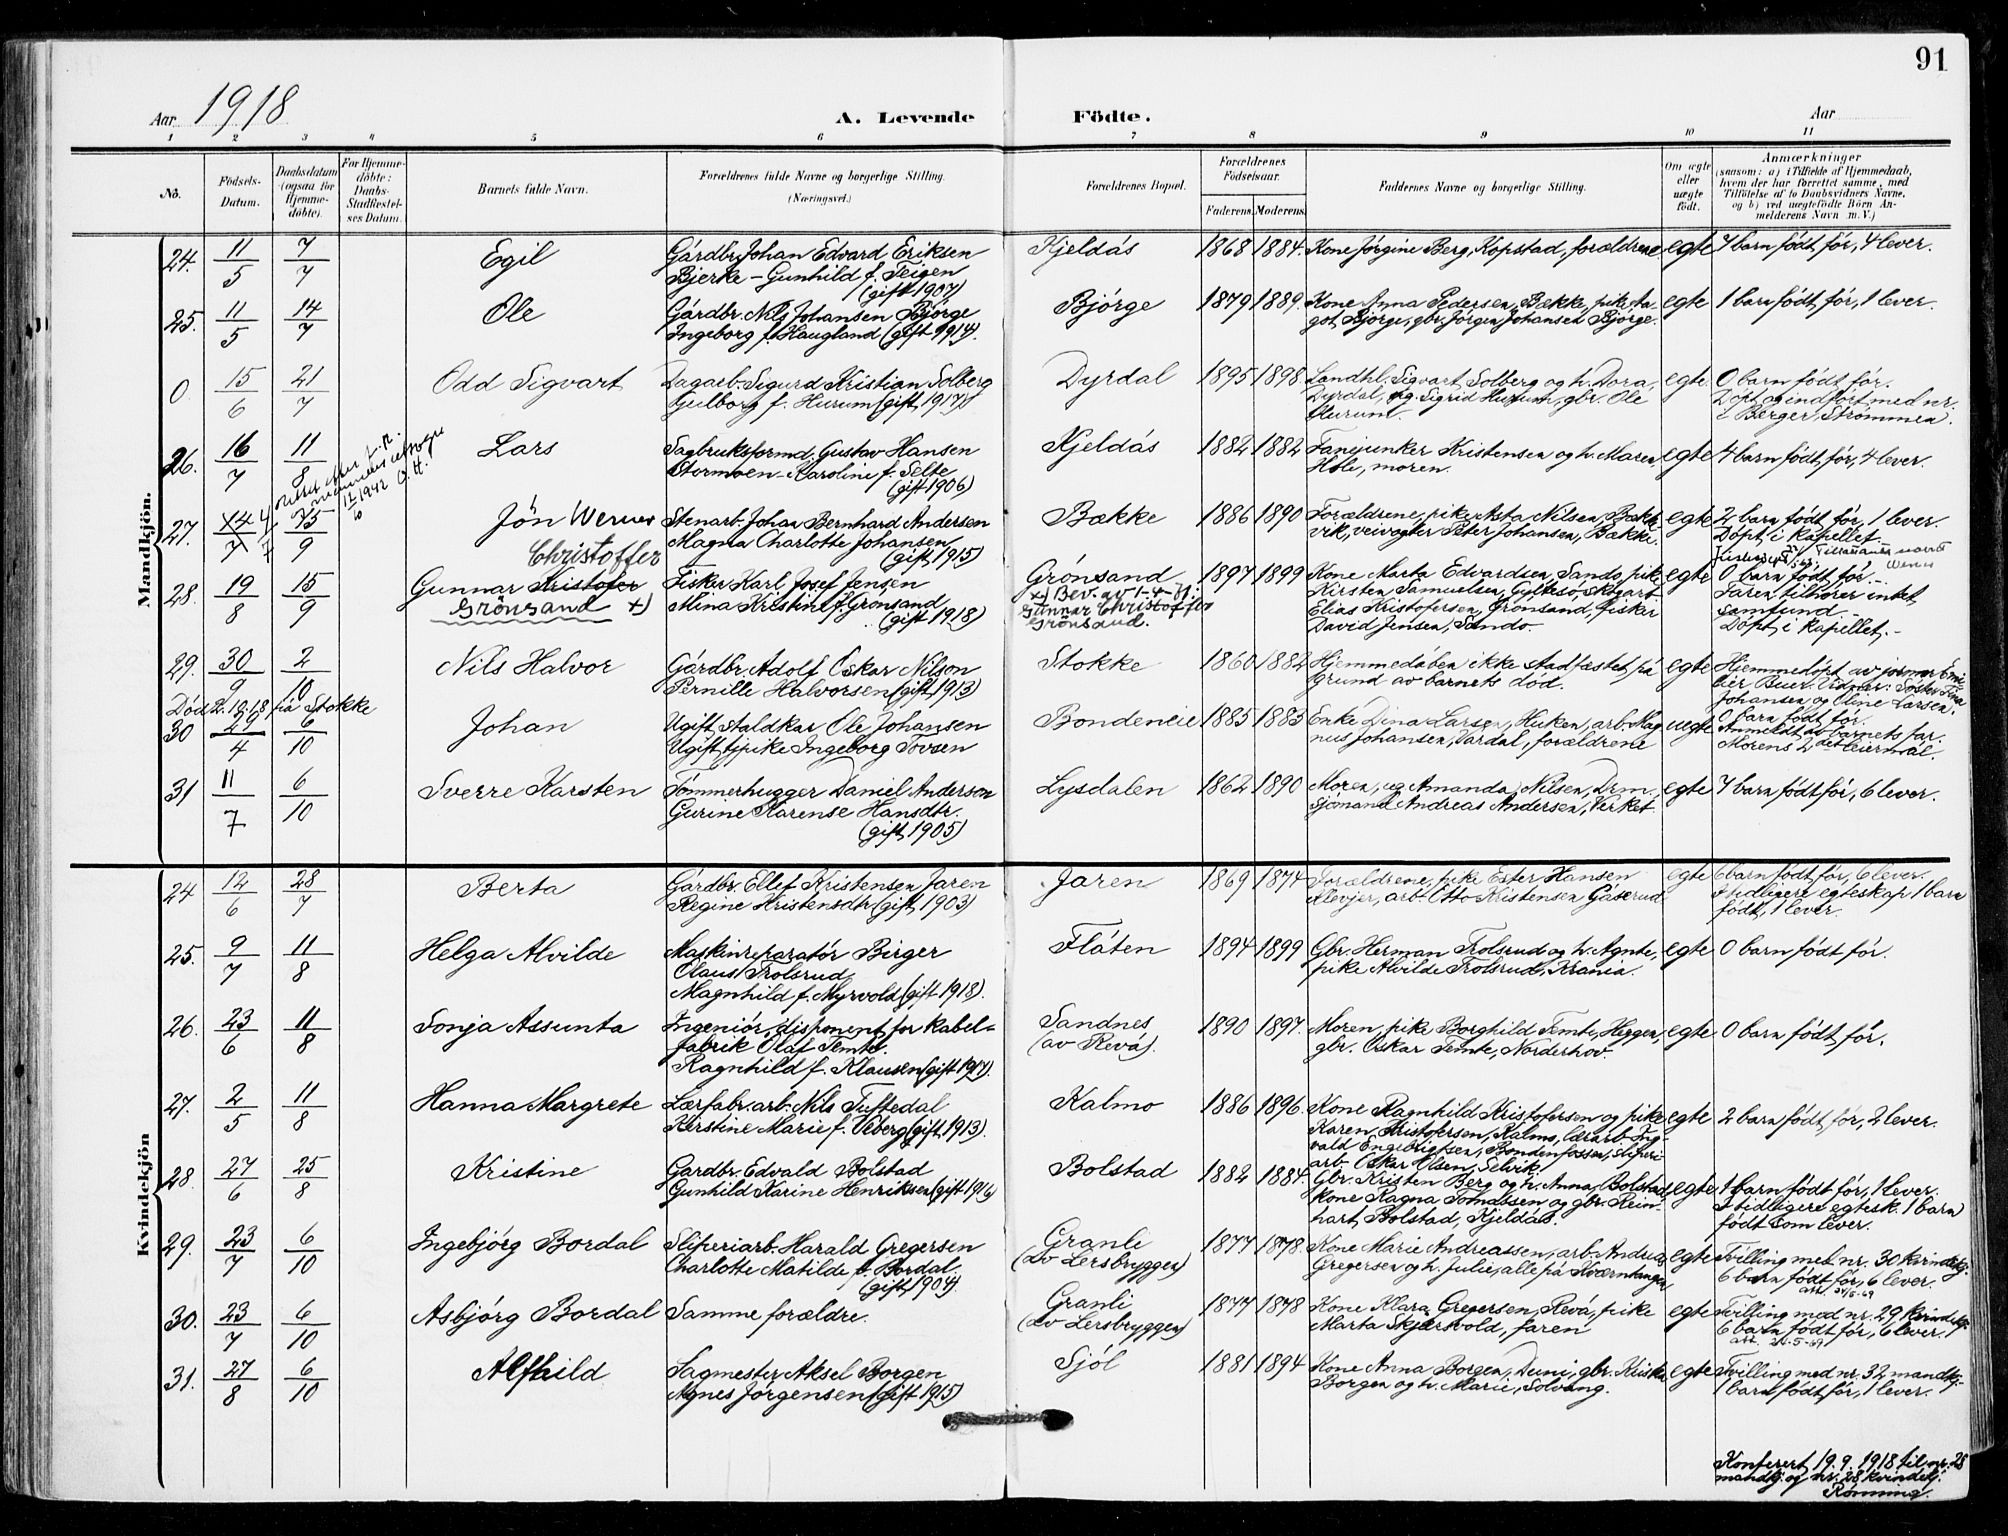 91
Aar 1918
A. Levende
Födte.
Aar
1 2 3 4 5 6 7 8 9 10 11
No.
Födsels-
Datum.
Daabsdatum
(ogsaa for
Hjemme-
döbte).
For Hjemme-
döbte:
Daabs-
Stadfæstel-
ses Datum.
Barnets fulde Navn.
Forældrenes fulde Navne og borgerlige Stilling.
(Næringsvei.)
Forældrenes Bopæl.
Forældrenes
Födselsaar.
Faderens. Moderens.
Faddernes Navne og borgerlige Stilling.
Om ægte
eller
uægte
födt.
Anmærkninger
(saasom: a) i Tilfælde af Hjemmedaab,
hvem der har forrettet samme, med
Tilföielse af to Daabsvidners Navne,
og b) ved uægtefödte Börn An-
melderens Navn m. V.)
Mandkjön.
24. 11/5 7/7 Egil
Gårdbr. Johan Edvard Eriksen
Bjerke - Gunhild f. Teigen
(gift 1907)
Kjeldås 1868 1884. Kone Jørgine Berg, Kopstad, forældrene egte 7 barn født før, 4 lever.
25. 11/5 14/7 Ole
Gårdbr. Nils Johansen Bjørge
Ingeborg f. Haugland (gift 1914).
Bjørge 1879 1889. Kone Anna Pedersen, Bække, pike
got Bjørge, gbr. Jørgen Johansen Bjørge.
egte 1 barn født før, 1 lever.
0 15/6 21/7 Odd Sigvart
Dagarb. Sigurd Kristian Solberg
f. Hurum (gift 1917)
Dyrdal 1895 1898. Landhl. Sigvart Solberg og h. Dora,
Dyrdal, pg. Sigrid Hurum, gbr. Ole
Hurum.
egte. 0 barn født før.
Døpt og indført med nr.
i Berger, Strømmen.
26. 16/7 11/8 Lars
Sagbruksformd. Gustav Hansen
Stormoen - Karoline f. Selte
(gift 1906)
Kjeldås 1882 1882 Fanejunker Kristensen og h. Maren
Hole, moren.
egte 4 barn født før, 4 lever.
1942 O.H.
27. 14/7 4/7 15/9 Jön Werner
Christoffer
Stenarb. Johan Bernhard Andersen
Magna Charlotte Johansen
(gift 1915)
Bække 1886 1890 Forældrene, pike Asta Nilsen, Bækk-
vik, veivogter Peter Johansen, Bække.
egte 2 barn født før, 1 lever.
Døpt i kapellet.
28. 19/8 15/9 Gunnar Kristofer
Grönsand x)
Fisker Karl Josef Jensen
Mina Kristine f. Grønsand
(gift 1918)
Grønsand
x) Bev. av 1-4-31:
Gunnar Christoffer
Grönsand.
1897 1899 Kone Marta Edvardsen, Sando, pike
Kirsten Samuelsen, Gylteso, skogarb.
Elias Kristofersen, Grønsand, fisker
David Jensen, Sando.
egte 0 barn født før.
Faren tilhører intet
samfund.
Døpt i kapellet.
29. 30/9 2/10 Nils Halvor
Gårdbr. Adolf Oskar Nilson
Pernille Halvorsen (gift 1913)
Stokke 1860 1882 Hjemmedåben ikke stadfæstet på
grund av barnets død.
egte Hjemmedøpt av jormor Emi-
lie Buer. Vidner: Søster Fina
Johansen og Oline Larsen.
Død 2.10.18 på Stokke
30 29/4 6/10 Johan
Ugift staldkar Ole Johansen
Ugift tjpike Ingeborg Tovsen
Bondeneie 1885 1883 Enke Dina Larsen, Huken, arb. Mag-
nus Johansen, Vardal, forældrene
uegte 0 barn født før.
Anmeldt av barnets far.
Morens 2det leiermål.
31 11/7 6/10 Sverre Karsten
Tømmerhugger Daniel Anderson
Gurine Karense Hansdtr.
(gift 1905)
Lysdalen 1862 1890 Moren, ug. Amanda Nilsen, Drm.,
sjømand Andreas Andersen, Verket.
egte 7 barn født før, 6 lever.
Kvindekjön
24 12/6 28/7 Berta
Gårdbr. Ellef Kristensen Jaren
Regine Kristensdtr. (gift 1903)
Jaren 1869 1874 Forældrene, pike Ester Hansen
Klevjer, arb. Otto Kristensen Gåserud
egte 6 barn født før, 6 lever.
I tidligere egteskap 1 barn
født, 1 lever.
25. 9/7 11/8 Helga Alvilde
Maskinreparatør Birger
Olaus Trolsrud
Magnhild f. Myrvold (gift 1918).
Flåten 1894 1899 Gbr. Herman Trolsrud og h. Agnte,
pike Alvilde Trolsrud, Krania.
egte 0 barn født før.
26. 23/6 11/8 Sonja Assunta
Ingeniør, disponent for kabel-
fabrik Olaf Temte.
Ragnhild f. Klausen (gift 1917).
Sandnes
(av Revå).
1890 1897. Moren, pike Borghild Temte, Heggen,
gbr. Oskar Temte, Norderhov.
egte 0 barn født før.
27. 2/5 11/8 Hanna Margrete
Lærfabr.arb. Nils Tuftedal
Kerstine Marie f. Veberg (gift 1913).
Kalmo 1886 1896. Kone Ragnhild Kristofersen og pike
Karen Kristofersen, Kalmo, lærarb. Ing-
vald Engebrigtsen, Bondenfossen, sliperi-
arb. Oskar Olsen, Selvik.
egte 2 barn født før, 2 lever.
28. 27/6 25/8 Kristine
Gårdbr. Edvald Bolstad
Gunhild Karine Henriksen (gift 1916)
Bolstad 1882 1884. Gbr. Kristen Berg og h. Anna, Bolstad,
kone Ragna Tomassen og gbr. Rein-
hart Bolstad, Kjeldås.
egte 1 barn født før, 1 lever.
I tidligere egtesk. 1 barn
født som lever.
29. 23/7 6/10 Ingebjørg Bordal
Sliperiarb. Harald Gregersen
Charlotte Matilde f. Bordal.
(gift 1904).
Granli
(av Lersbryggen)
1877 1878. Kone Marie Andreassen, arb. Andreas
Gregersen og h. Julie, alle på Kværntangen
egte Tvilling med nr. 30 kvindekj.
6 barn født før, 6 lever.
30. 23/7 6/10 Asbjørg Bordal Samme forældre.
Granli
(av Lersbryggen)
1877 1878 Kone Klara Gregersen, Revå, pike
Marta Skjørsvold, faren
egte Tvilling med nr. 29 kvindekj.
6 barn født før, 6 lever.
31. 27/8 6/10 Alfhild
Sagmester Aksel Borgen
Agnes Jørgensen (gift 1915)
Sjøl 1881 1894 Kone Anna Borgen, Duni, gbr.
Borgen og h. Marie, Solvang.
egte Tvilling med nr. 32 mandkj.
1 barn født før, 1 lever.
Konferert 19.9.1918 til nr. 28
mandkj. og nr. 28 kvindekj.
Rønning.